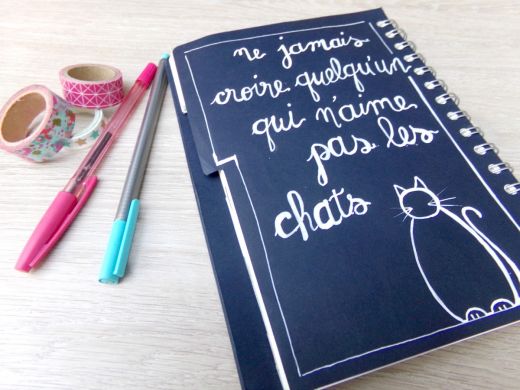 ne jamais
croire quelqu'un
qui n'aime
pas les
chats